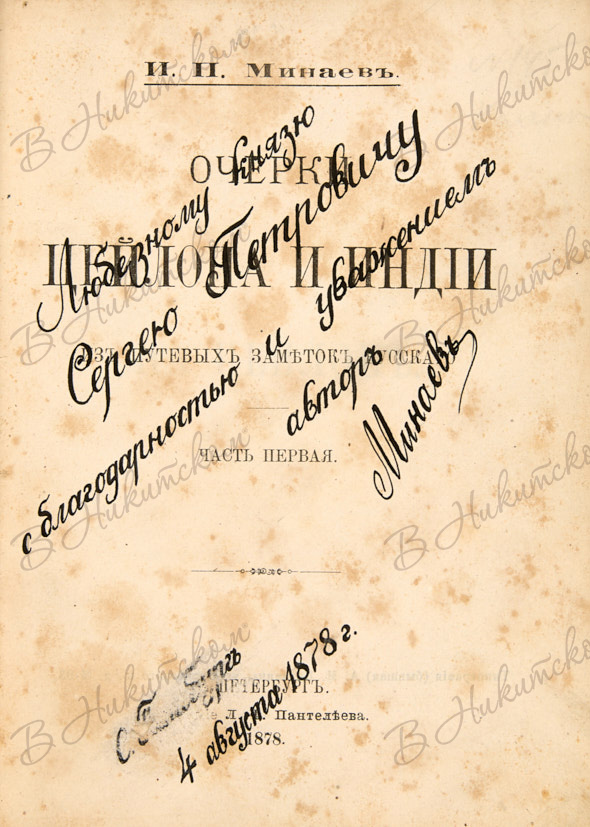 И. П. Минаевъ.
ОЧЕРКИ
ЦЕЙЛОНА И ИНДІИ
ИЗЪ ПУТЕВЫХЪ ЗАМѢТОКЪ РУССКАГО
ЧАСТЬ ПЕРВАЯ.
Любезному князю
Сергею Петровичу
с благодарностью и уважениемъ
авторъ
Минаевъ
С. Петербургъ
4 августа 1878 г.
ПЕТЕРБУРГЪ.
Л. Пантелѣева.
1878.
В Никитском
В Никитском
В Никитском
В Никитском
В Никитском
В Никитском
В Никитском
В Никитском